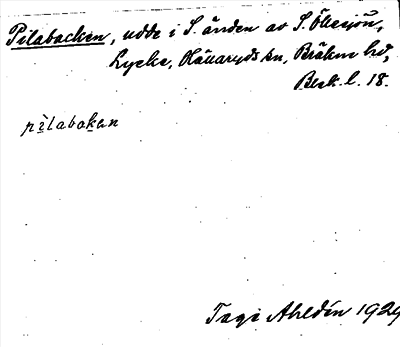 Pilabacken, udde i S. änden av S. Öllesjön,
Lycke, Hällaryds sn, Bräkne hd,
Bl. k. l. 18.
pìlabakan
Tage Ahldén 1929